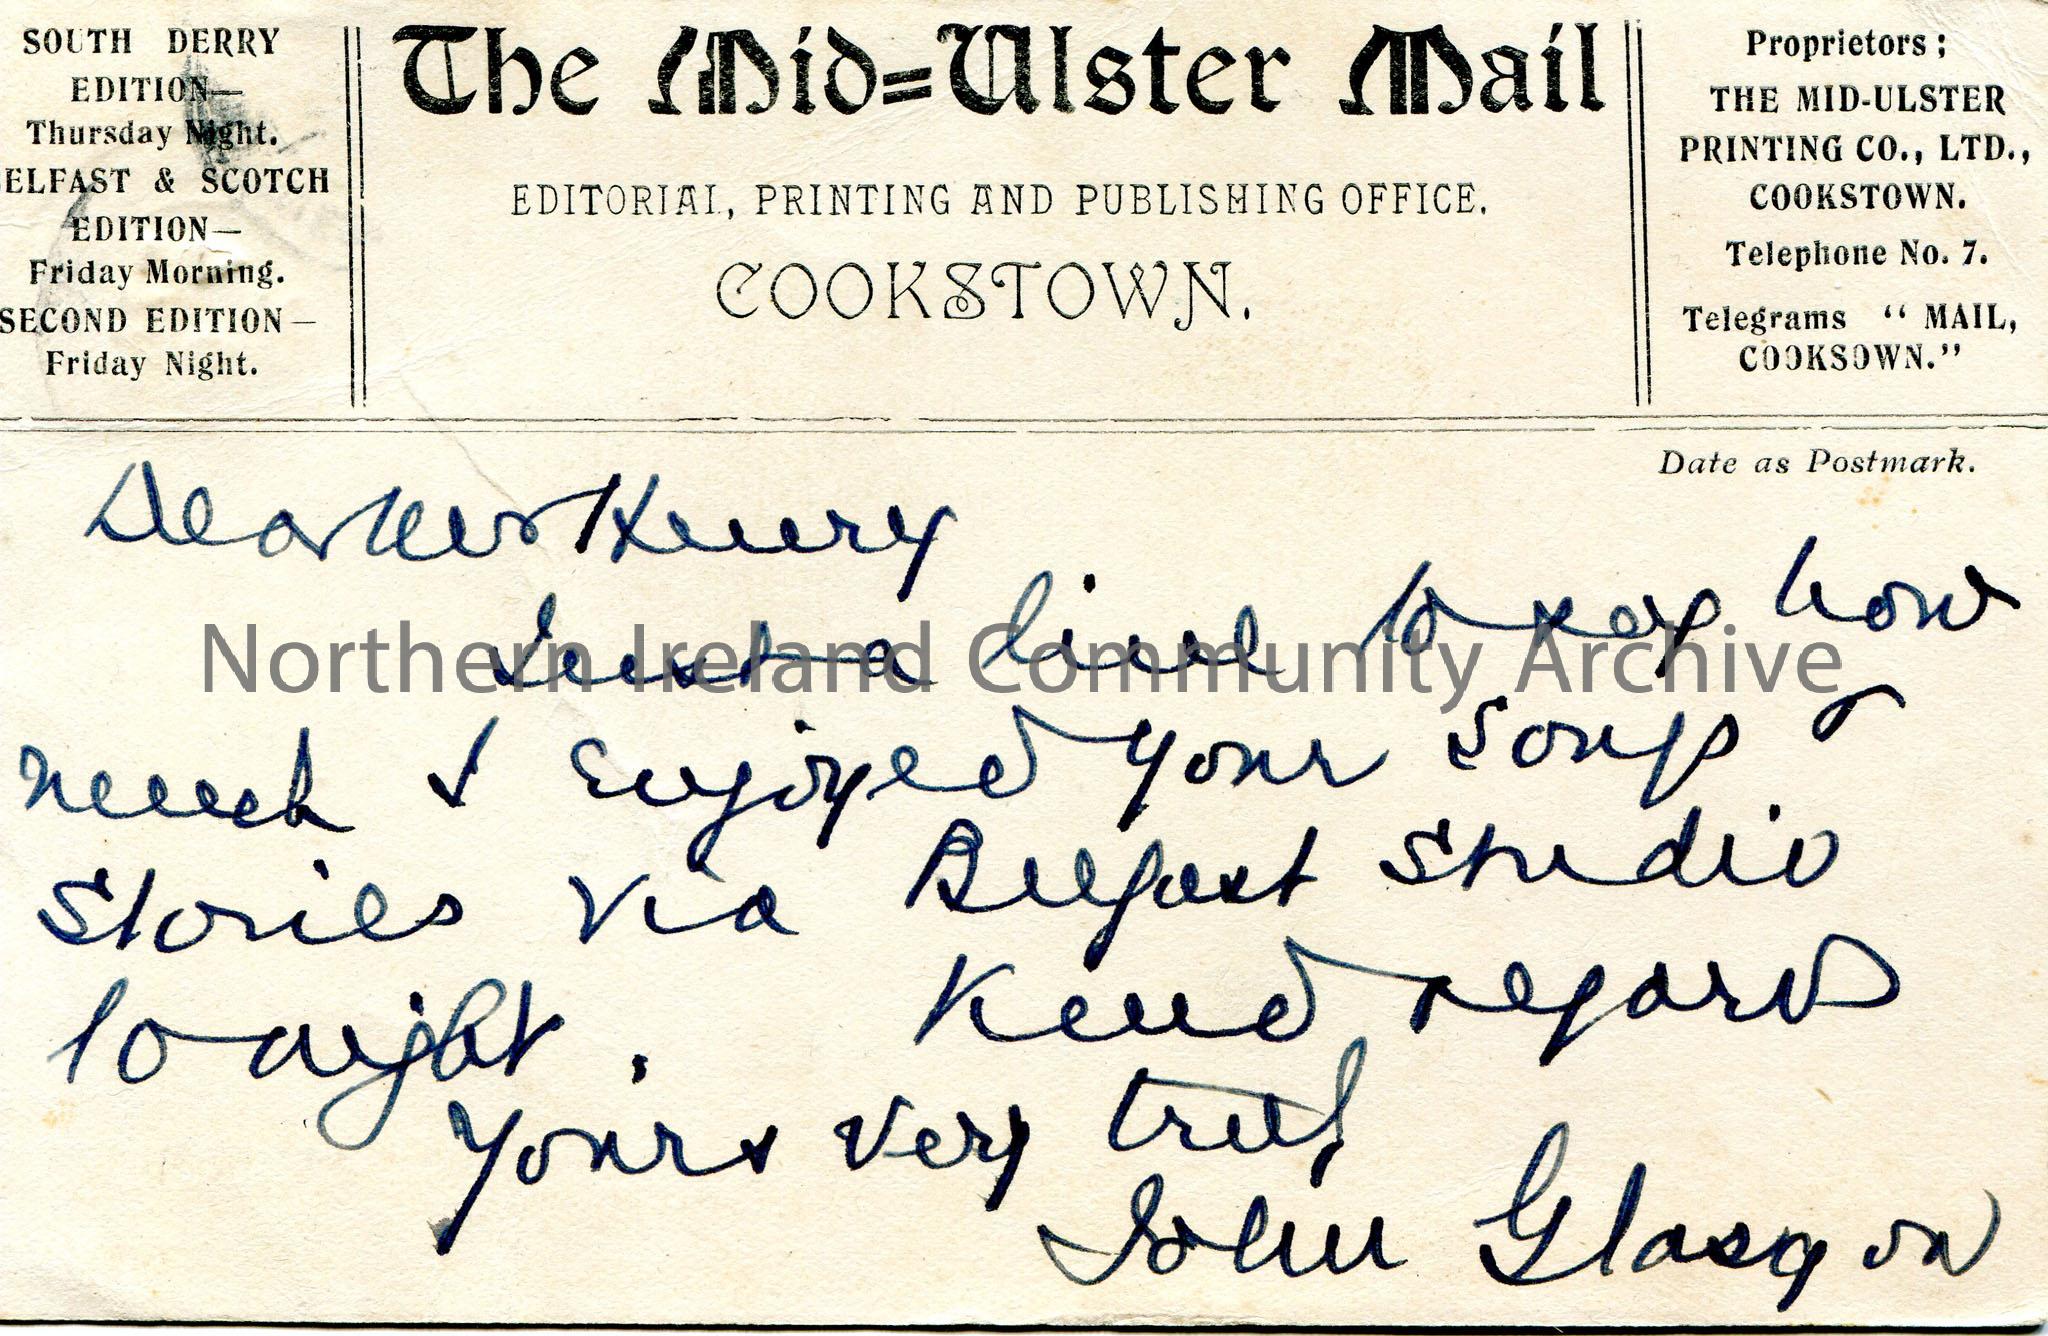 SOUTH DERRY
EDITION—
Thursday Night.
ELFAST & SCOTCH
EDITION—
Friday Morning.
SECOND EDITION—
Friday Night.
The Mid=Ulster Mail
EDITORIAL, PRINTING AND PUBLISHING OFFICE.
COOKSTOWN.
Proprietors;
THE MID-ULSTER
PRINTING CO., LTD.,
COOKSTOWN.
Telephone No. 7.
Telegrams “ MAIL,
COOKSOWN.”
Date as Postmark.
Dear Mrs Henry
Just a line to say how
much I enjoyed your songs &
Stories via Belfast Studio
to night. Kind regards
Yours very truly
John Glasgow
Northern Ireland Community Archive